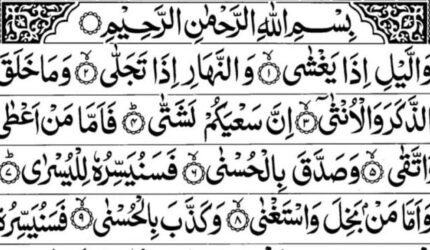 بِسْمِ اللهِ الرَّحْمٰنِ الرَّحِيْمِ
وَالَّيْلِ اِذَا يَغْشٰى ۙ﴿۱﴾ وَ النَّهَارِ اِذَا تَجَلّٰى ۙ﴿۲﴾ وَ مَا خَلَقَ
الذَّكَرَ وَالْاُنْثٰٓى ۙ﴿۳﴾ اِنَّ سَعْيَكُمْ لَشَتّٰى ؕ﴿۴﴾ فَاَمَّا مَنْ اَعْطٰى
وَاتَّقٰى ۙ﴿۵﴾ وَ صَدَّقَ بِالْحُسْنٰى ۙ﴿۶﴾ فَسَنُيَسِّرُهٗ لِلْيُسْرٰى ؕ﴿۷﴾
وَ اَمَّا مَنْۢ بَخِلَ وَاسْتَغْنٰى ۙ﴿۸﴾ وَ كَذَّبَ بِالْحُسْنٰى ۙ﴿۹﴾ فَسَنُيَسِّرُهٗ